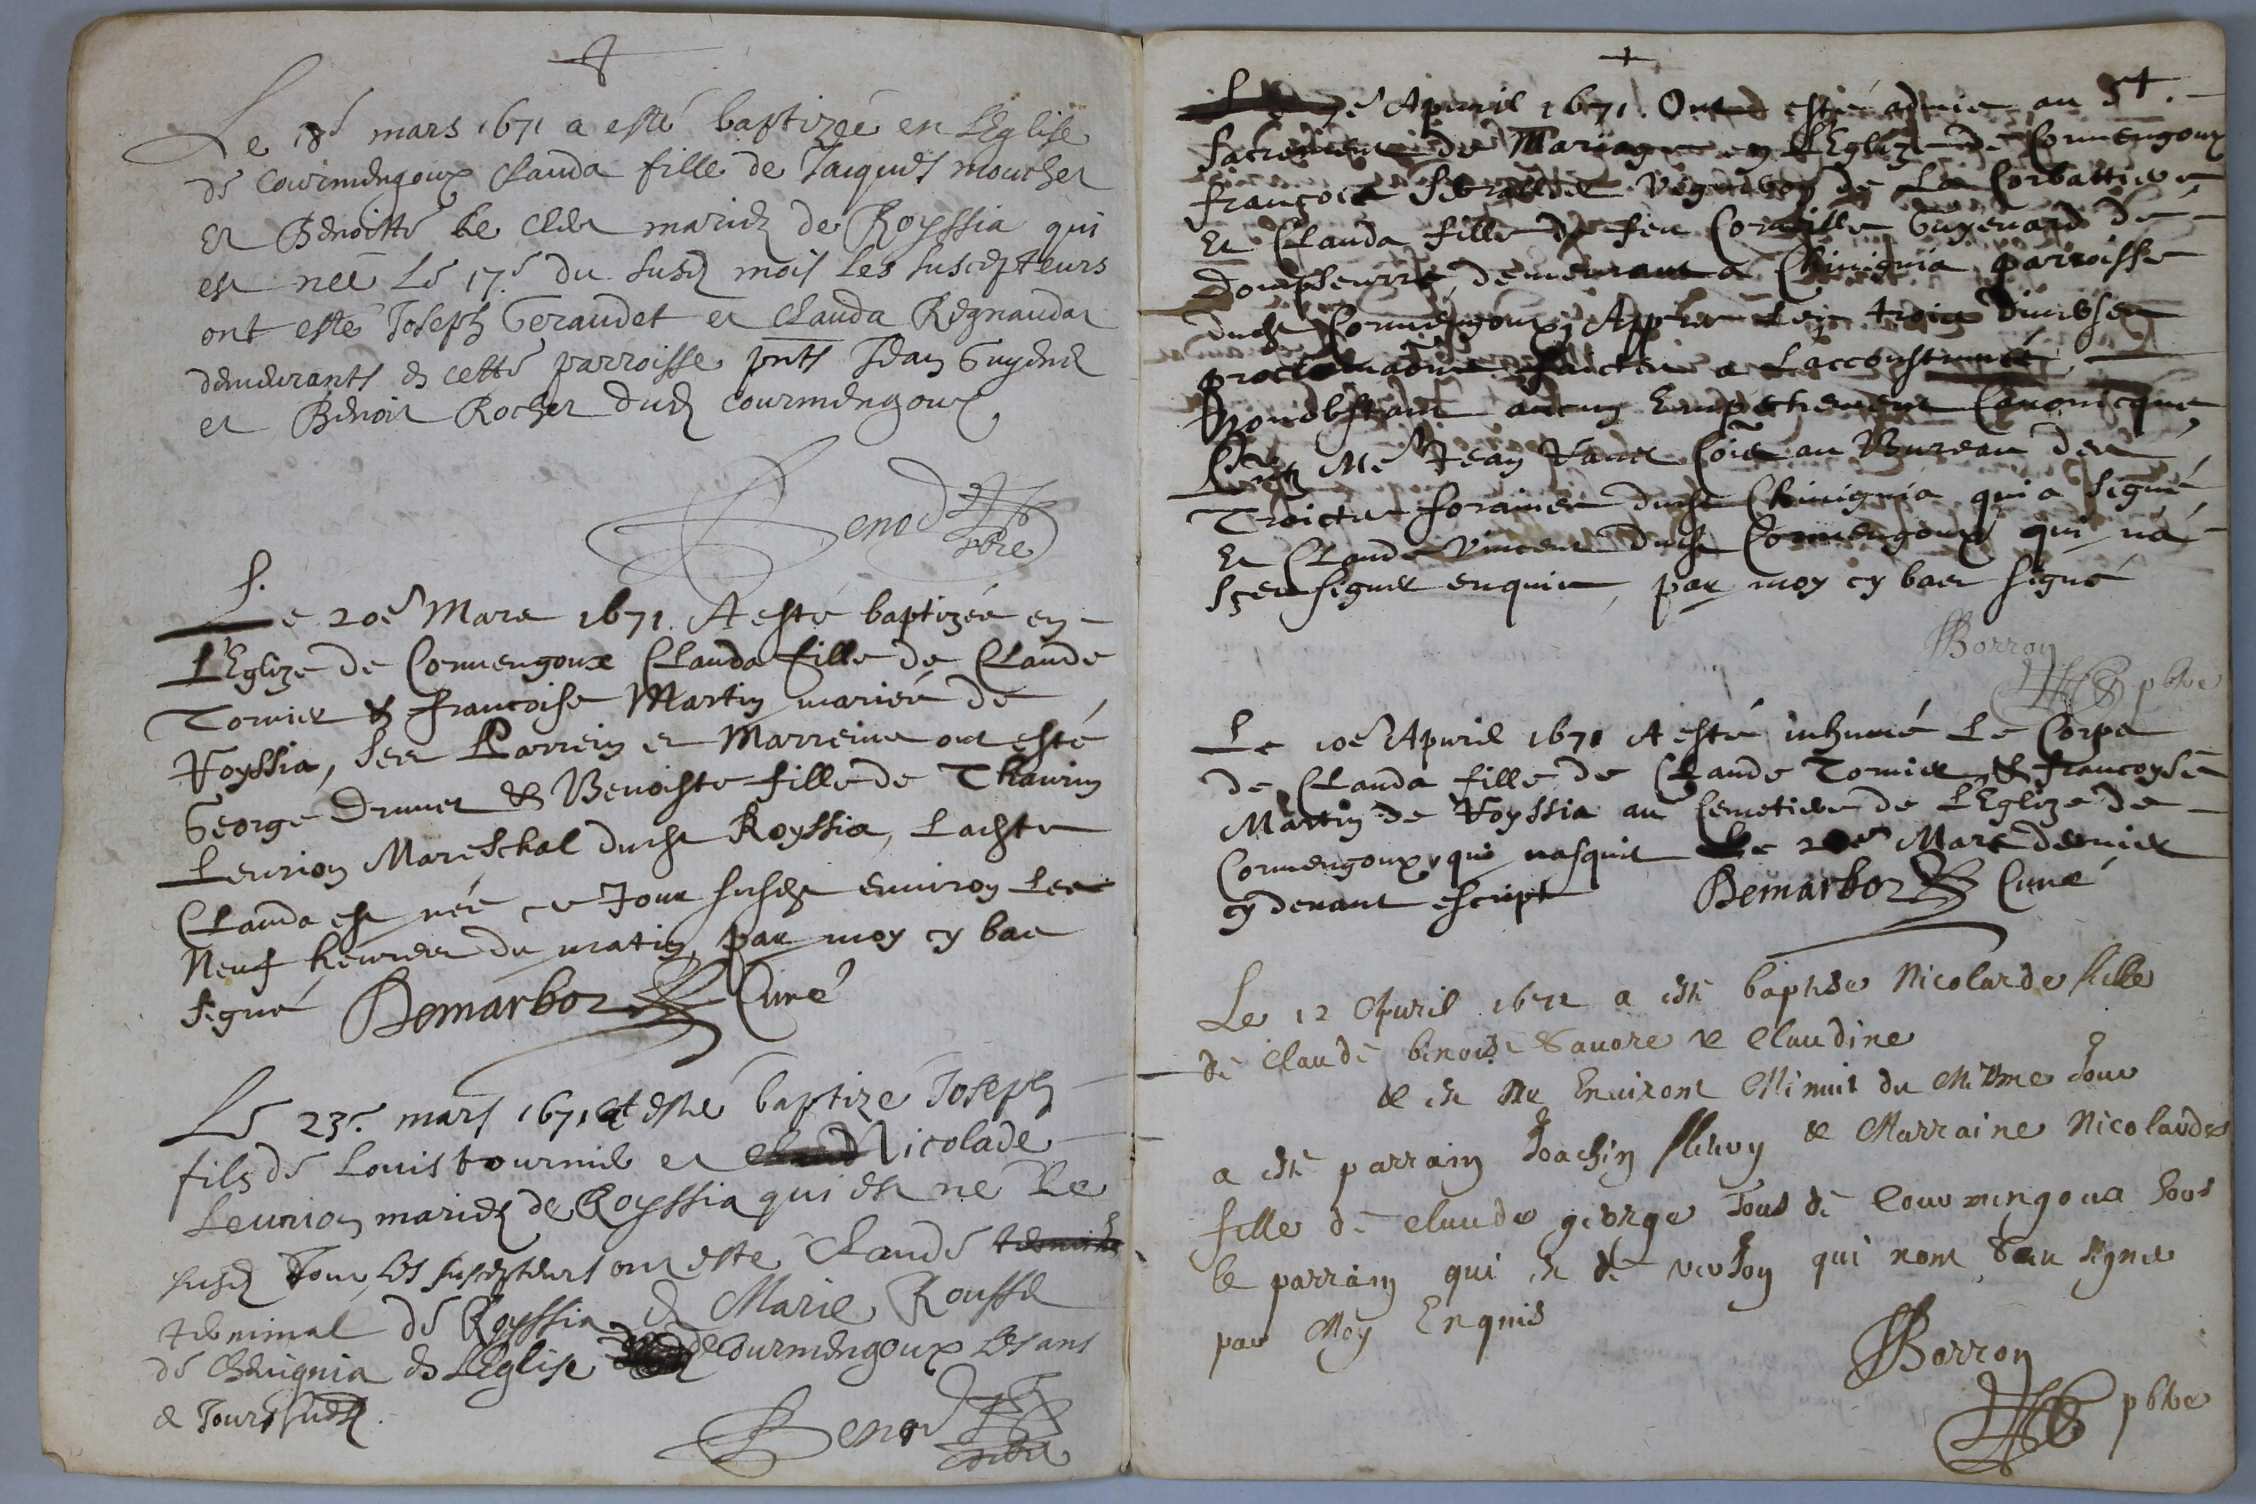 Le 18e mars 1671 a esté baptizée en L'Eglise
de Courmengoux Clauda fille de Jacques mouchet
et Benoitte mariez de Royssia qui
est née Le 17e du susd mois les suscepteurs
ont esté Joseph Geraudet et Clauda Regnaudat
demeurants en cette parroisse pnts Jean Guyenet
et Benoit Rochet dud courmengoux
Benod
pbre
Le 20e Mars 1671. A esté baptizée en
L'Eglize de Cormengoux Clauda fille de Claude
Tornier & francoise Martin mariés de
Royssia, ses Parrein et Marreine ont esté
George Drunet & Benoiste fille de Thaurin
Leurion Mareschal dudt Royssia, Ladste
Clauda est née ce Jour susdt environ Les
Neuf heures du matin, par moy cy bas
signé Demarboz Curé
Le 23e mars 1671 at esté baptizé Joseph
fils de Louis tournier et Nicolade
Leurion mariez de Royssia qui est né Le
susd Jour, les suscepteurs ont esté Claude
de Royssia et Marie Rousset
de Chevignia en L'Eglise de Courmengoux les ans
et Jour susd.
Benod
Le 7e Apuril 1671. Ont esté admis au St.
Sacrement de Mariage en L'Eglize de Cormengoux
françois vigneron de La Corbattiere
Et Clauda fille de feu Guyenard de
demeurant a Chinignia parroisse
dudt Cormengoux, Apprès Les trois diverses
proclamaõns faictes a L'accoustumée,
Nonobstant aucun Empeschement Canonicque,
Me Jean Vauet Cõis au Bureau des
Traictes foraines dudt Chinignia qui a signé,
Et Claude Vincent dudt Cormengoux qui n'a
sçeu signer enquis, par moy cy bas signé
Borron
pbre
Le 10e Apuril 1671 A esté inhumé Le Corps
de Clauda fille de Claude Tornier & francoyse
Martin de Royssia au Cemetiere de L'Eglize de
Cormengoux, qui nasquit Le 20e Mars dernier
cy devant escript Demarboz Curé
Le 12 Apuril 1671 a esté baptisé Nicolarde fille
de Claude benoist Savore & Claudine
& est née Environt Minuit du Mesme Jour
a esté parrain Joachin & Marraine Nicolarde
fille de claude george Tous de Courmengoua hors
le parrain qui est de qui nont seu signer
par Moy Enquis
Borron
pbre